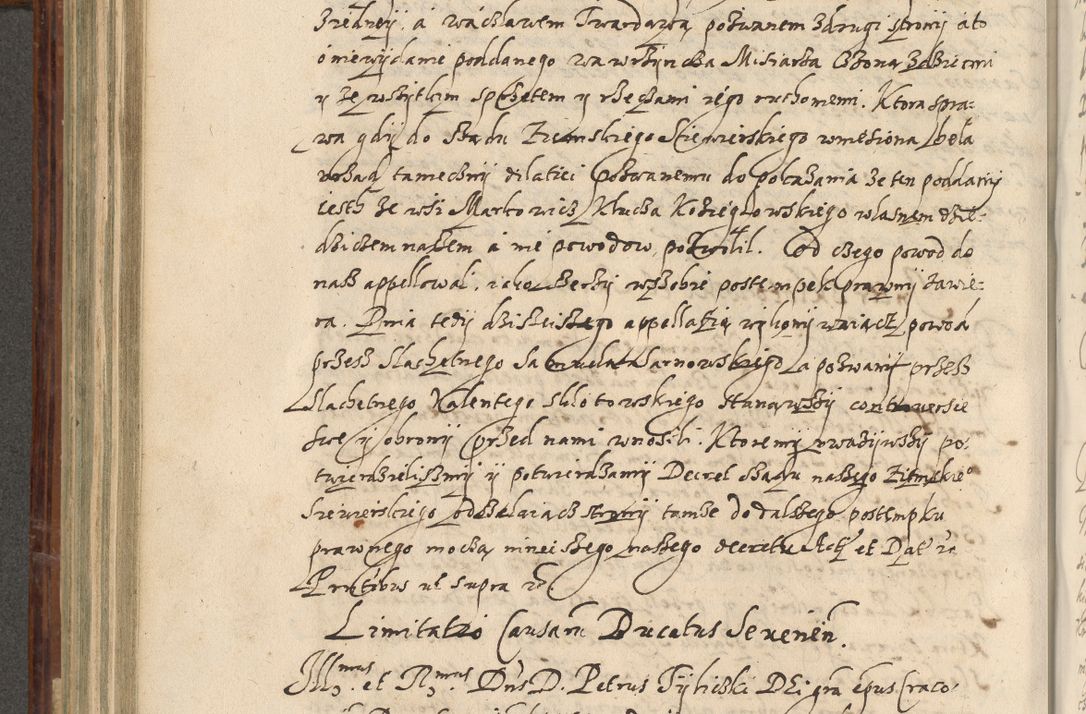 zrednej, a wacławem Twardawą pozwanem zdrugi strony o to
o niewydanie poddanego wawrzyncza Misiarza Ożoną zdziecmi
y ze wszytkim sprzętem y rzeczami iego ruchomemi. Ktora spra:
wa gdy do Sządu Ziemskiego Siewierskiego wniesiona beła
wsząd tameczny dilatiei Pozwanemu do pokazania ze ten poddany
iesth ze wsi Markowicz Klucza Koziegłowskiego własnem dzie:
dzicznem naszem a nie powodow, pozwolił. Od czego powod do
nasz appellował, iako szerzy wszobie postempek prawny zawie:
ra. Dnia tedy dzisieiszego appellatią wykonywaiącz powod
przesz Slachetnego Samuela Sarnowskiego a pozwany przesz
Slachetnego Walentego Słotowskiego stanąwszy controwersie
swe y obrony przed nami wnosili. Ktoremy uwazywszy po:
twierdzieliszmy y potwierdzamy Decret sządu naszego Ziemskie°
Siewierskiego odszelaiącz strony tamże do dalszego postempku
prawnego moczą nineiszego naszego decretu. Act et Dat ra
Prntibus ut supra
Limitatio Causarum Ducatus Severien.
Illmus et Rmus Dns D. Petrus Tylicki Dei gra epus Craco